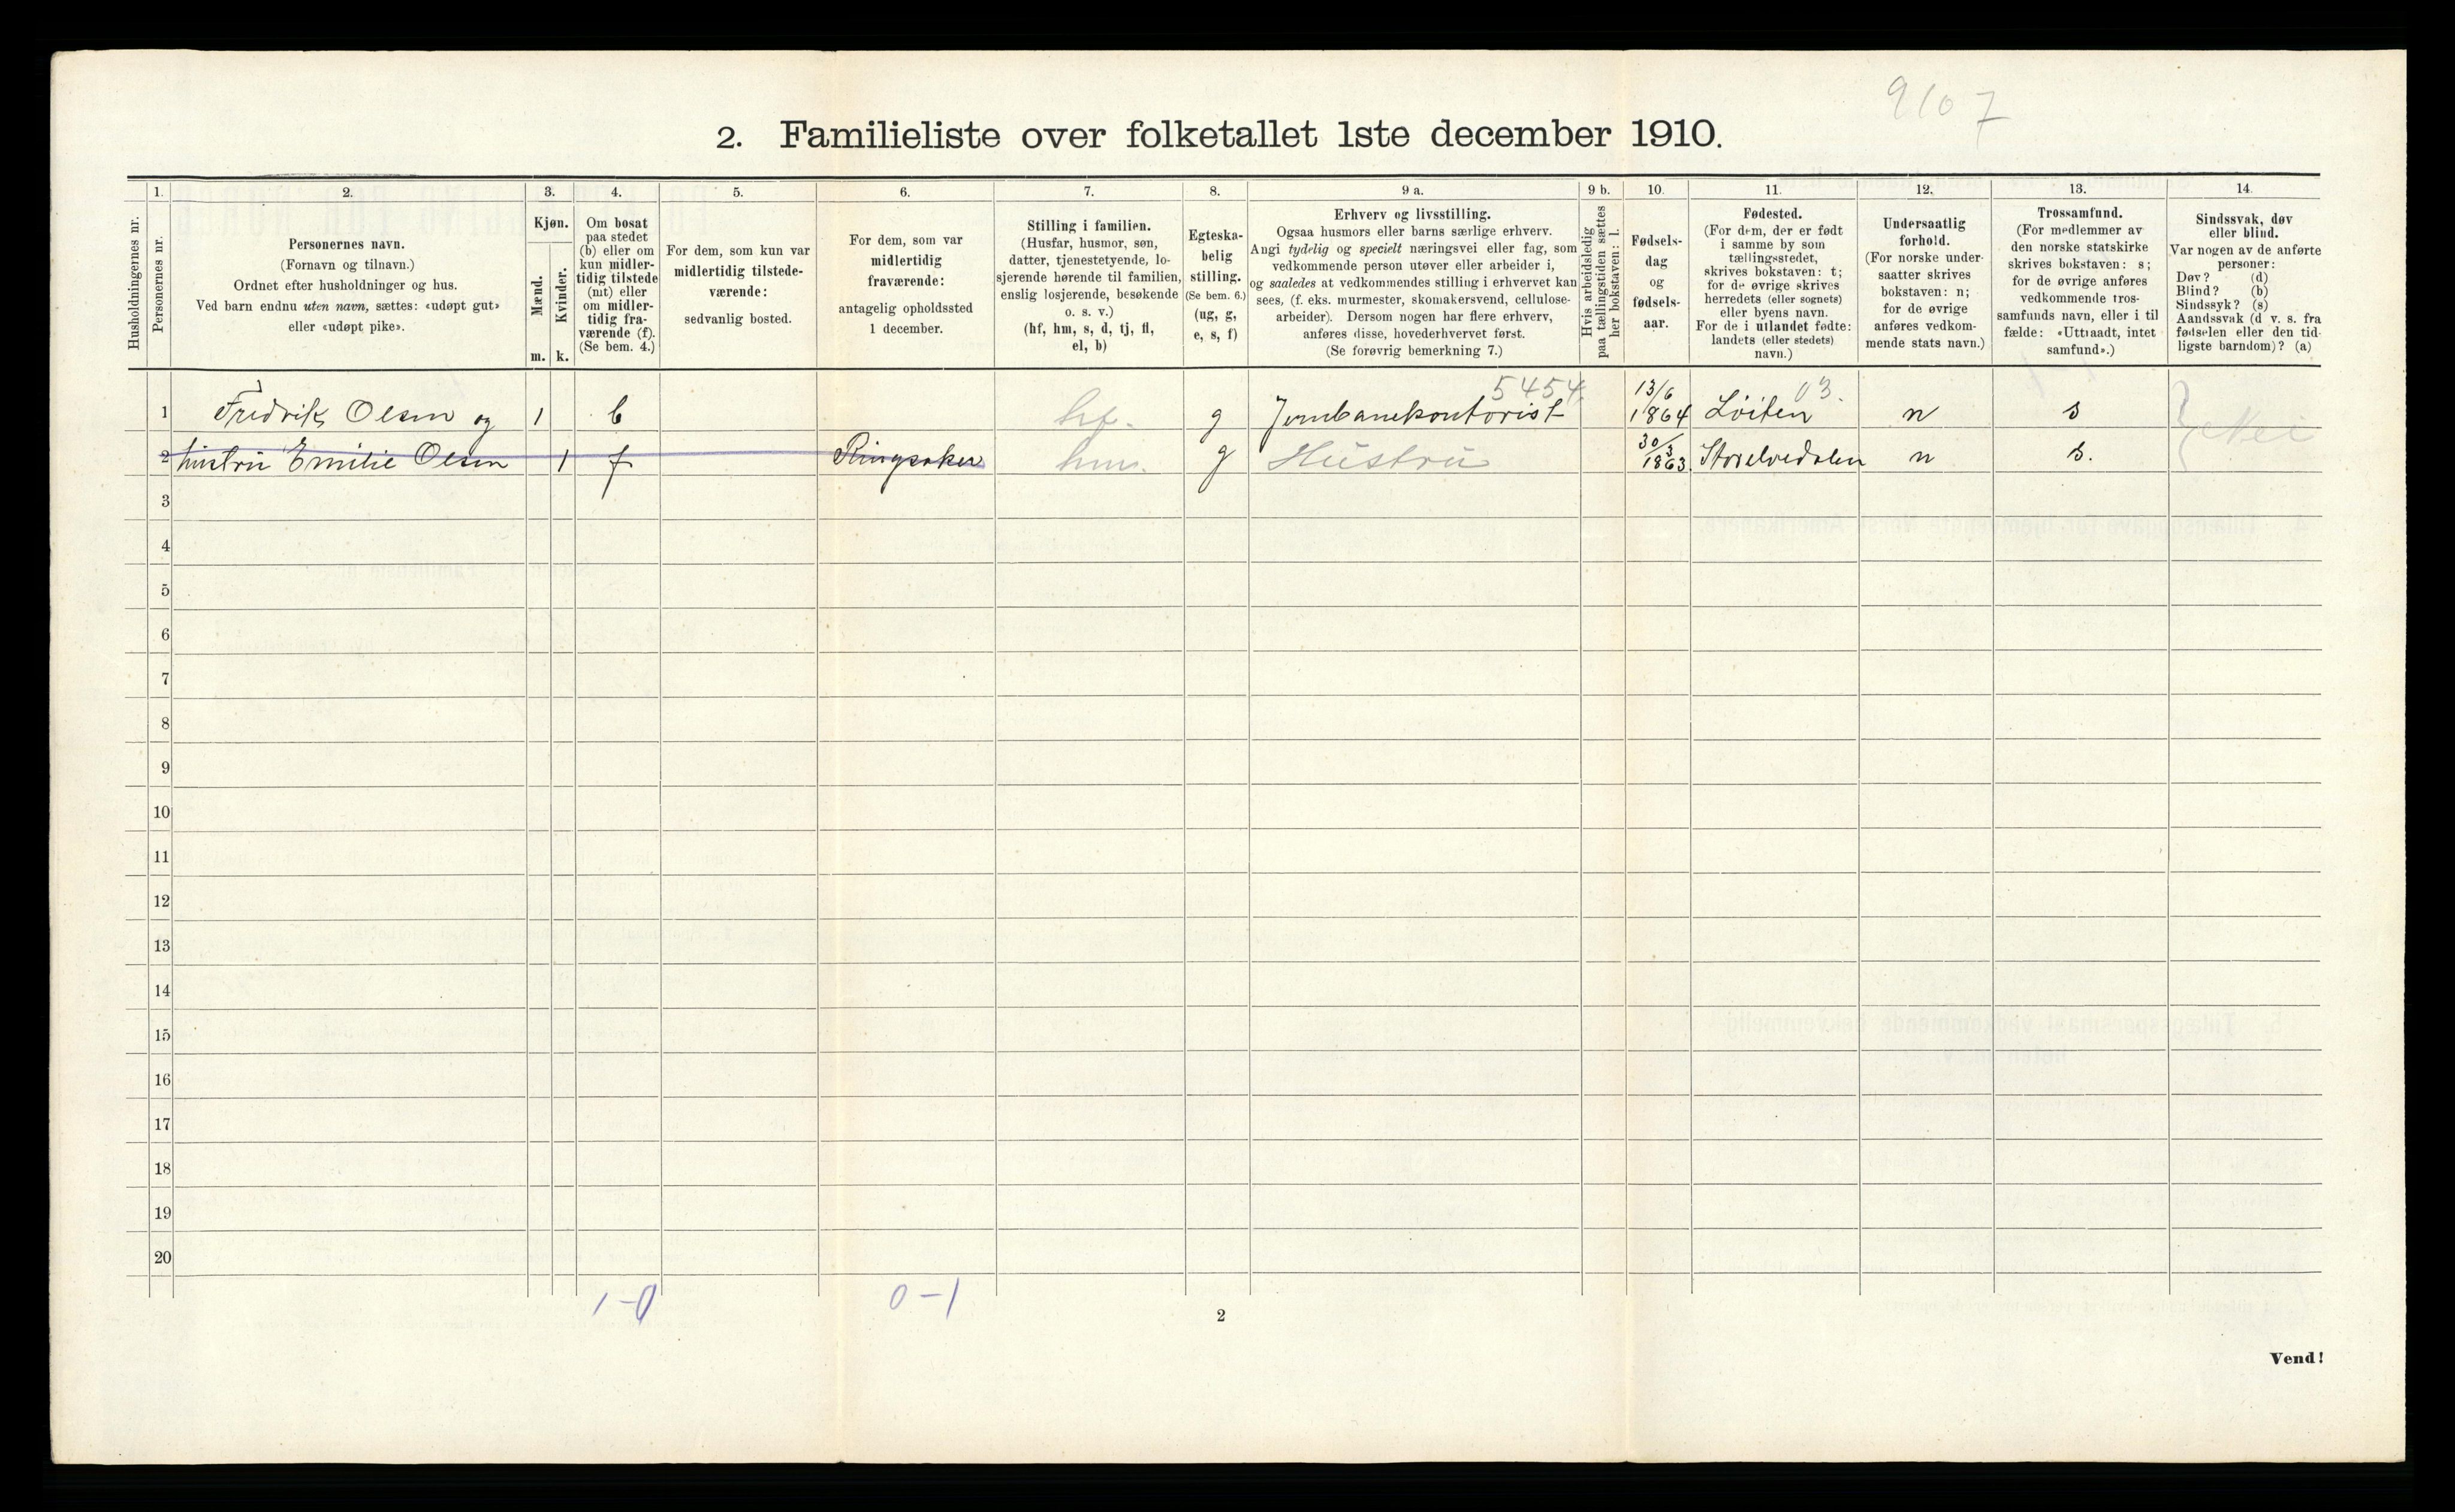 9107
2. Familieliste over folketallet 1ste december 1910.
Husholdningernes nr.
1.
Personernes nr.
2.
Personernes navn.
(Fornavn og tilnavn.)
Ordnet efter husholdninger og hus.
Ved barn endnu uten navn, sættes: «udøpt gut»
eller «udøpt pike».
3.
Kjøn.
Mænd.
Kvinder.
m. k.
4.
Om bosat
paa stedet
(b) eller om
kun midler-
tidig tilstede
(mt) eller
om midler-
tidig fra-
værende (f).
(Se bem. 4.)
5.
For dem, som kun var
midlertidig tilstede-
værende:
sedvanlig bosted.
6.
For dem, som var
midlertidig
fraværende:
antagelig opholdssted
1 december.
7.
Stilling i familien.
(Husfar, husmor, søn,
datter, tjenestetyende, lo-
sjerende hørende til familien,
enslig losjerende, besøkende
o. s. v.)
(hf, hm, s, d, tj, fl,
el, b)
8.
Egteska-
belig
stilling.
(Se bem. 6.)
(ug, g,
e, s, f)
9 a.
Erhverv og livsstilling.
Ogsaa husmors eller barns særlige erhverv.
Angi tydelig og specielt næringsvei eller fag, som
vedkommende person utøver eller arbeider i,
og saaledes at vedkommendes stilling i erhvervet kan
sees, (f. eks. murmester, skomakersvend, cellulose-
arbeider). Dersom nogen har flere erhverv,
anføres disse, hovederhvervet først.
(Se forøvrig bemerkning 7.)
9 b.
Hvis arbeidsledig
paa tællingstiden sættes
her bokstaven: l.
10.
Fødsels-
dag
og
fødsels-
aar.
11.
Fødested.
(For dem, der er født
i samme by som
tællingsstedet,
skrives bokstaven: t;
for de øvrige skrives
herredets (eller sognets)
eller byens navn.
For de i utlandet fødte:
landets (eller stedets)
navn.)
12.
Undersaatlig
forhold.
(For norske under-
saatter skrives
bokstaven: n;
for de øvrige
anføres vedkom-
mende stats navn.)
13.
Trossamfund.
(For medlemmer av
den norske statskirke
skrives bokstaven: s;
for de øvrige anføres
vedkommende tros-
samfunds navn, eller i til
fælde: «Uttraadt, intet
samfund».)
14.
Sindssvak, døv
eller blind.
Var nogen av de anførte
personer:
Døv? (d)
Blind? (b)
Sindssyk? (s)
Aandssvak (d v. s. fra
fødselen eller den tid-
ligste barndom)? (a)
1 Fredrik Olsen og 1 b hf. g Jernbanekontorist 5454. 13/6 1864 Löiten 03. n s Nei
2 hustru Emilie Olsen 1 f Ringsaker hm. g Hustru 30/3 1863. Storelvedalen n s.
3
4
5
6
7
8
9
10
11
12
13
14
15
16
17
18
19
20
1-0 0-1
2
Vend!